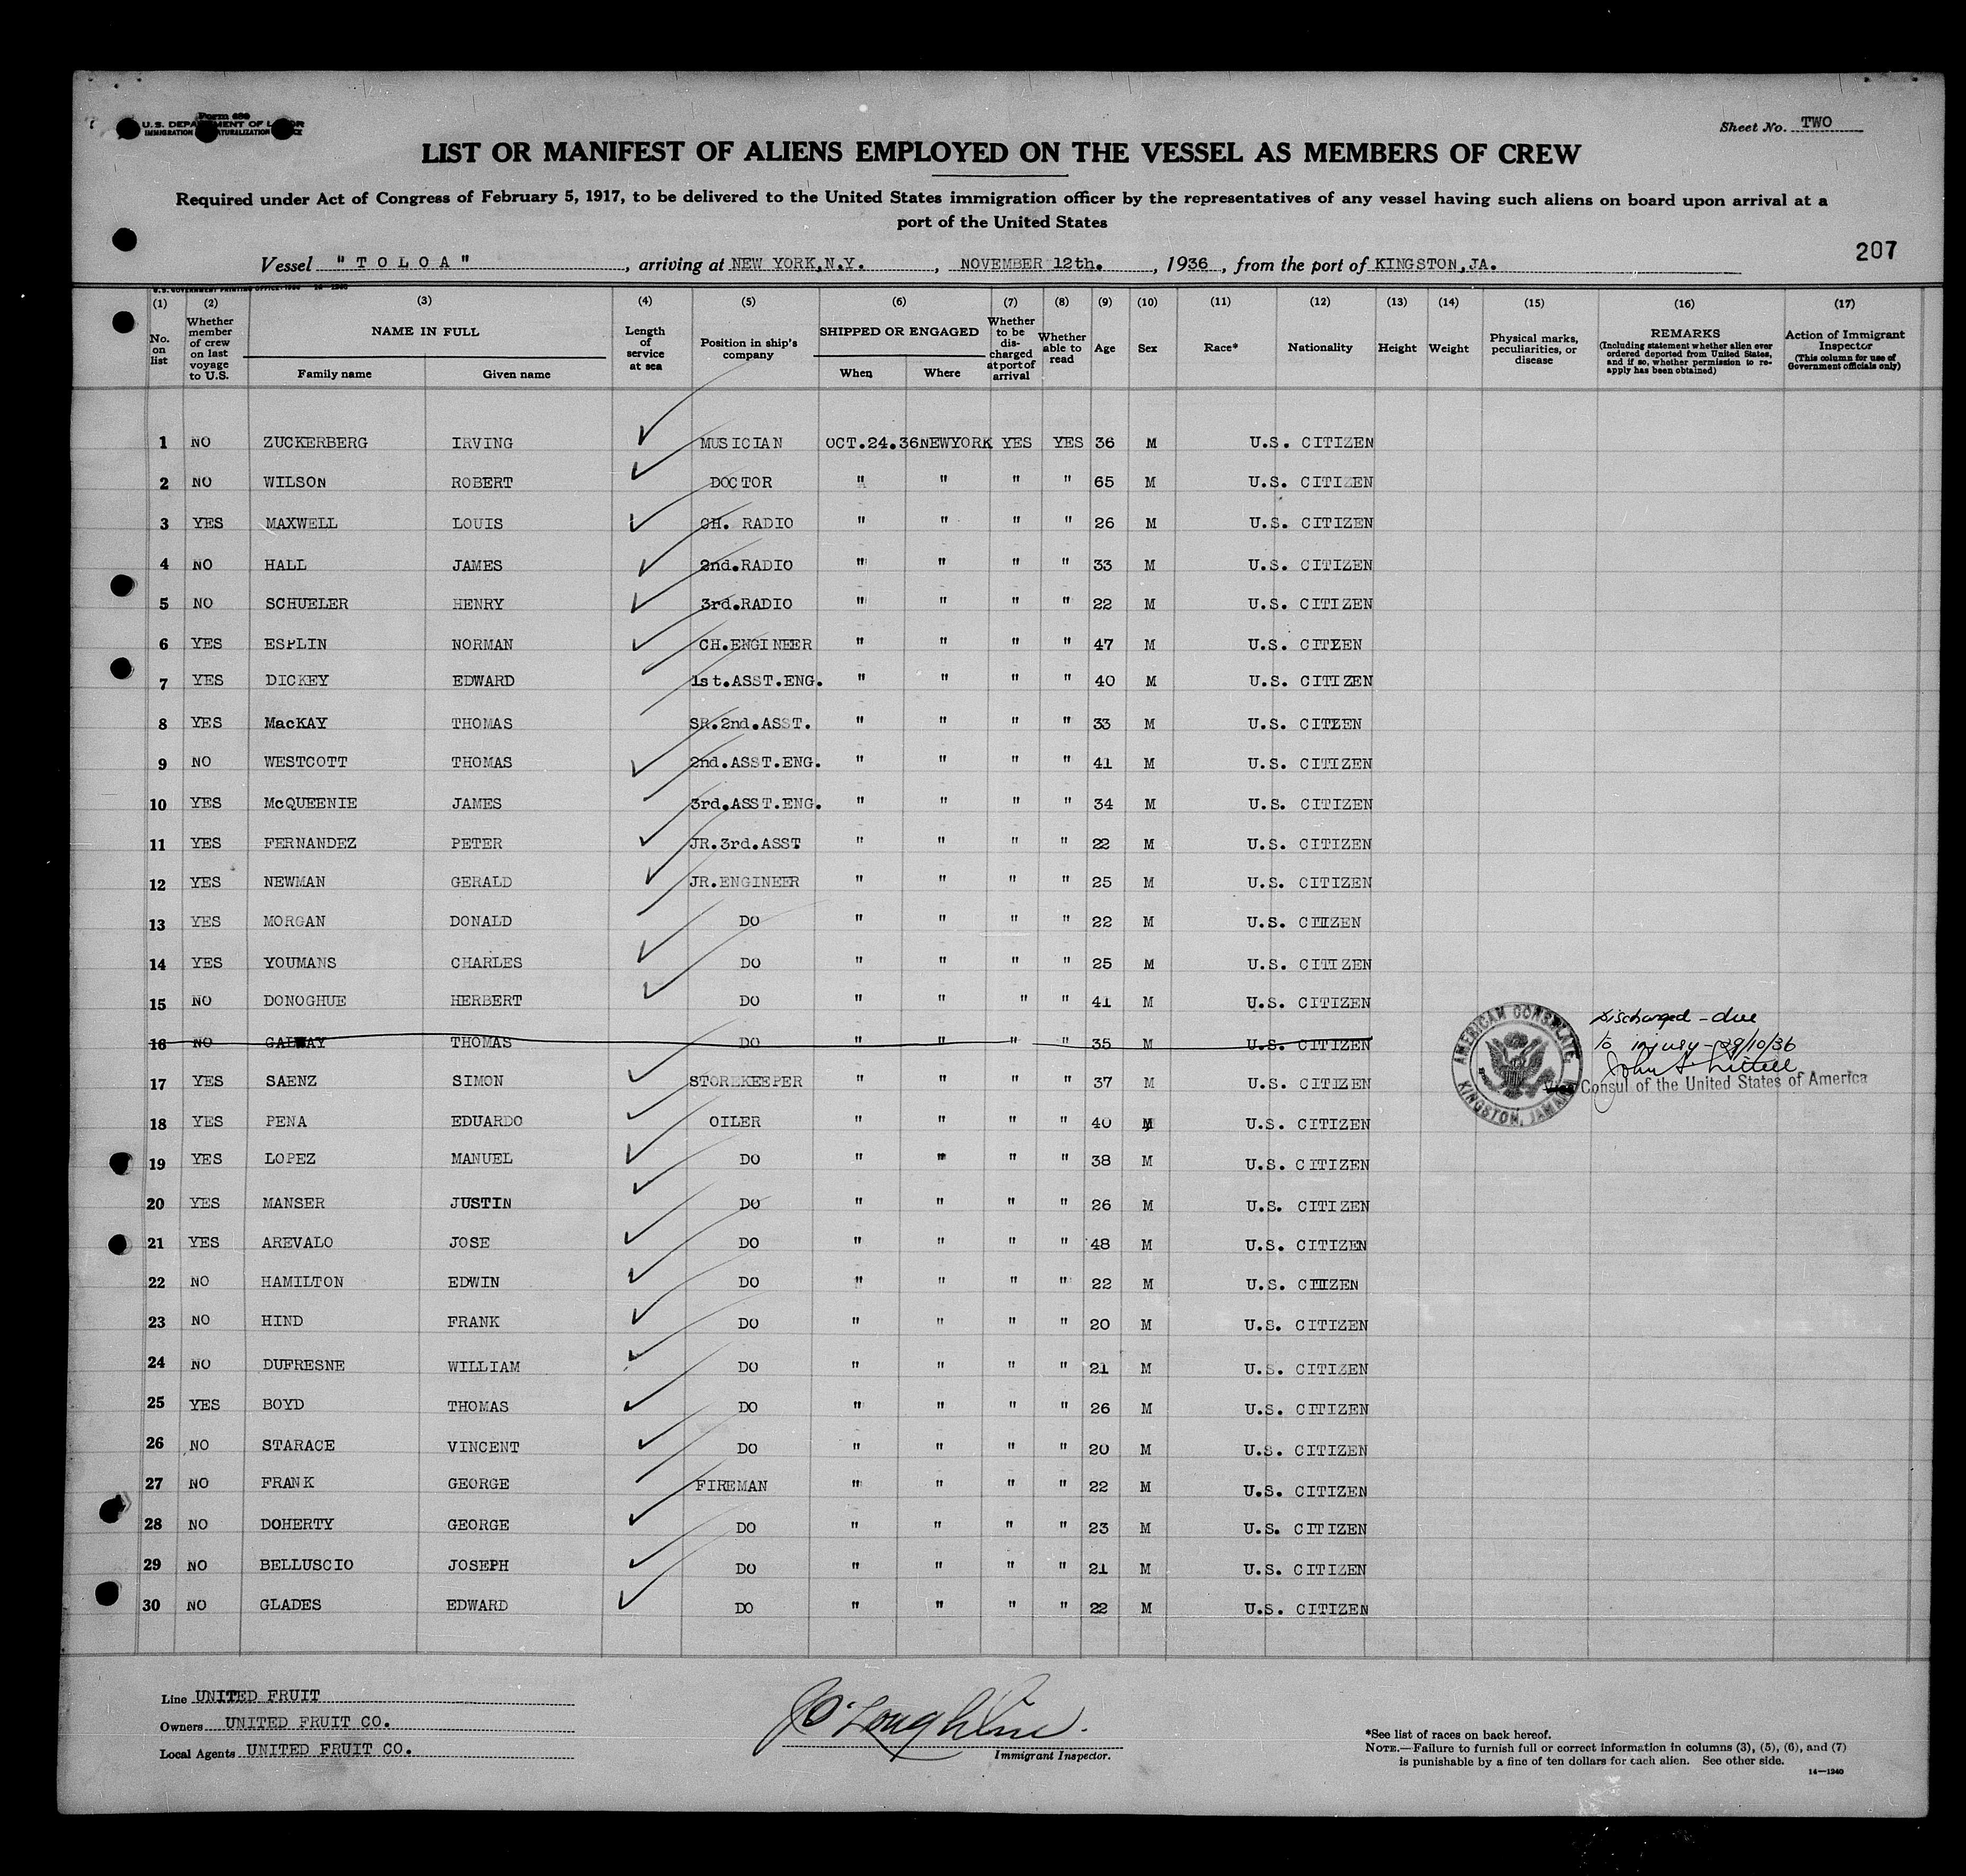 Form 680
U.S. DEPARTMENT OF LABOR
IMMIGRATION NATURALIZATION SERVICE
Sheet No. TWO
LIST OR MANIFEST OF ALIENS EMPLOYED ON THE VESSEL AS MEMBERS OF CREW
Required under Act of Congress of February 5, 1917, to be delivered to the United States immigration officer by the representatives of any vessel having such aliens on board upon arrival at a
port of the United States
207
Vessel "TOLOA", arriving at NEW YORK,N.Y., NOVEMBER 12th., 1936, from the port of KINGSTON,JA.
(1) (2) (3) (4) (5) (6) (7) (8) (9) (10) (11) (12) (13) (14) (15) (16) (17)
No. on list | Whether member of crew on last voyage to U.S. | NAME IN FULL Family name Given name | Length of service at sea | Position in ship's company | SHIPPED OR ENGAGED When Where | Whether to be dis-charged at port of arrival | Whether able to read | Age | Sex | Race* | Nationality | Height | Weight | Physical marks, peculiarities, or disease | REMARKS (Including statement whether alien ever ordered deported from United States, and if so, whether permission to re-apply has been obtained) | Action of Immigrant Inspector (This column for use of Government officials only)
1 NO ZUCKERBERG IRVING MUSICIAN OCT.24.36 NEWYORK YES YES 36 M U.S. CITIZEN
2 NO WILSON ROBERT DOCTOR " " " " 65 M U.S. CITIZEN
3 YES MAXWELL LOUIS CH. RADIO " " " " 26 M U.S. CITIZEN
4 NO HALL JAMES 2nd.RADIO " " " " 33 M U.S. CITIZEN
5 NO SCHUELER HENRY 3rd.RADIO " " " " 22 M U.S. CITIZEN
6 YES ESPLIN NORMAN CH.ENGINEER " " " " 47 M U.S. CITIZEN
7 YES DICKEY EDWARD 1st.ASST.ENG. " " " " 40 M U.S. CITIZEN
8 YES MacKAY THOMAS SR.2nd.ASST. " " " " 33 M U.S. CITIZEN
9 NO WESTCOTT THOMAS 2nd.ASST.ENG. " " " " 41 M U.S. CITIZEN
10 YES McQUEENIE JAMES 3rd.ASST.ENG. " " " " 34 M U.S. CITIZEN
11 YES FERNANDEZ PETER JR.3rd.ASST " " " " 22 M U.S. CITIZEN
12 YES NEWMAN GERALD JR.ENGINEER " " " " 25 M U.S. CITIZEN
13 YES MORGAN DONALD DO " " " " 22 M U.S. CITIZEN
14 YES YOUMANS CHARLES DO " " " " 25 M U.S. CITIZEN
15 NO DONOGHUE HERBERT DO " " " " 41 M U.S. CITIZEN
16 NO GALWAY THOMAS DO " " " 35 M U.S. CITIZEN
Discharged - due
to injury - 29/10/36
John S. Littell
Vice Consul of the United States of America
AMERICAN CONSULATE, KINGSTON, JAMAICA
17 YES SAENZ SIMON STOREKEEPER " " " " 37 M U.S. CITIZEN
18 YES PENA EDUARDO OILER " " " " 40 M U.S. CITIZEN
19 YES LOPEZ MANUEL DO " " " " 38 M U.S. CITIZEN
20 YES MANSER JUSTIN DO " " " " 26 M U.S. CITIZEN
21 YES AREVALO JOSE DO " " " " 48 M U.S. CITIZEN
22 NO HAMILTON EDWIN DO " " " " 22 M U.S. CITIZEN
23 NO HIND FRANK DO " " " " 20 M U.S. CITIZEN
24 NO DUFRESNE WILLIAM DO " " " " 21 M U.S. CITIZEN
25 YES BOYD THOMAS DO " " " " 26 M U.S. CITIZEN
26 NO STARACE VINCENT DO " " " " 20 M U.S. CITIZEN
27 NO FRANK GEORGE FIREMAN " " " " 22 M U.S. CITIZEN
28 NO DOHERTY GEORGE DO " " " " 23 M U.S. CITIZEN
29 NO BELLUSCIO JOSEPH DO " " " " 21 M U.S. CITIZEN
30 NO GLADES EDWARD DO " " " " 22 M U.S. CITIZEN
Line UNITED FRUIT
Owners UNITED FRUIT CO.
Local Agents UNITED FRUIT CO.
Immigrant Inspector.
*See list of races on back hereof.
NOTE.—Failure to furnish full or correct information in columns (3), (5), (6), and (7)
is punishable by a fine of ten dollars for each alien. See other side.
14—1240